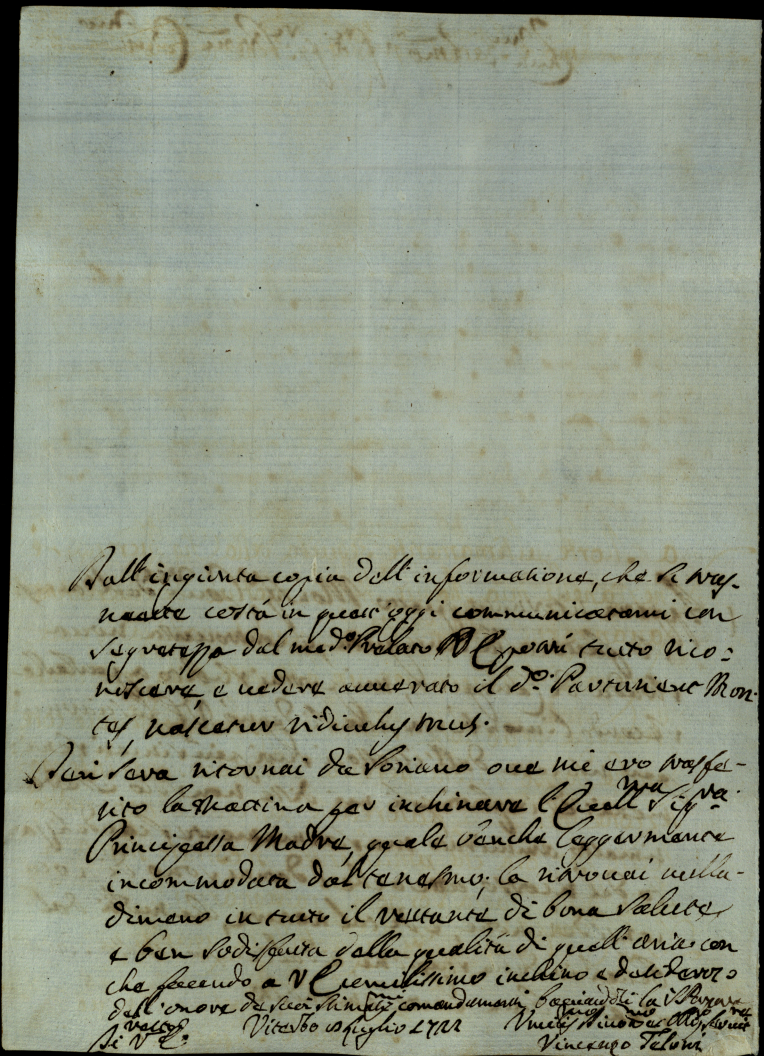 Dall' ingiunta copia dell' informatione, che si tras-
mette costà in quest' oggi communicatami con
segretezza dal med.o Prelato V E potrà tutto rico=
noscere, e vedere auuerato il d.o Parturient Mon-
tes, nascetur ridiculus mus.
Ieri sera ritornai da Soriano oue mi ero trasfe-
rito la mattina per inchinare l' Eccell.ma Sig.ra
Principessa Madre, quale benche leggermente
incommodata dal tenesmo, la ritrouai nulla-
dimeno in tutto il restante di bona salute,
e ben sodisfatta della qualità di quell' aria; con
che facendo a V E humilissimo inchino e desideroso
dell' onore de suoi stimat.mi comandamenti
Di V E. Viterbo Luglio 1722
Vincenzo Teloni